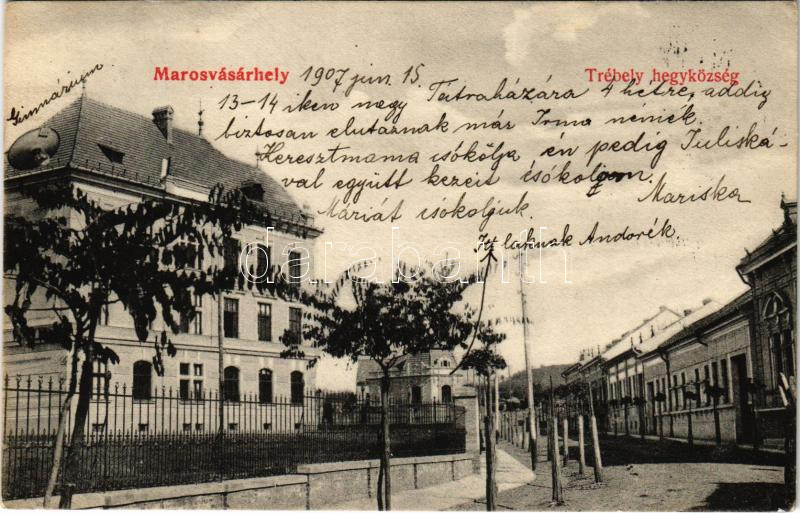 Marosvásárhely
Trébely hegyközség
Gimnázium
1907 jun. 15.
13-14 iken megy Tátraházára 4 hétre, addig
biztosan elutaznak már Irma néniék.
Keresztmama csókolja én pedig Juliská-
val együtt kezeit csókolom. Mariska
Máriát csókoljuk.
Itt laknak Andorék.
darabanth